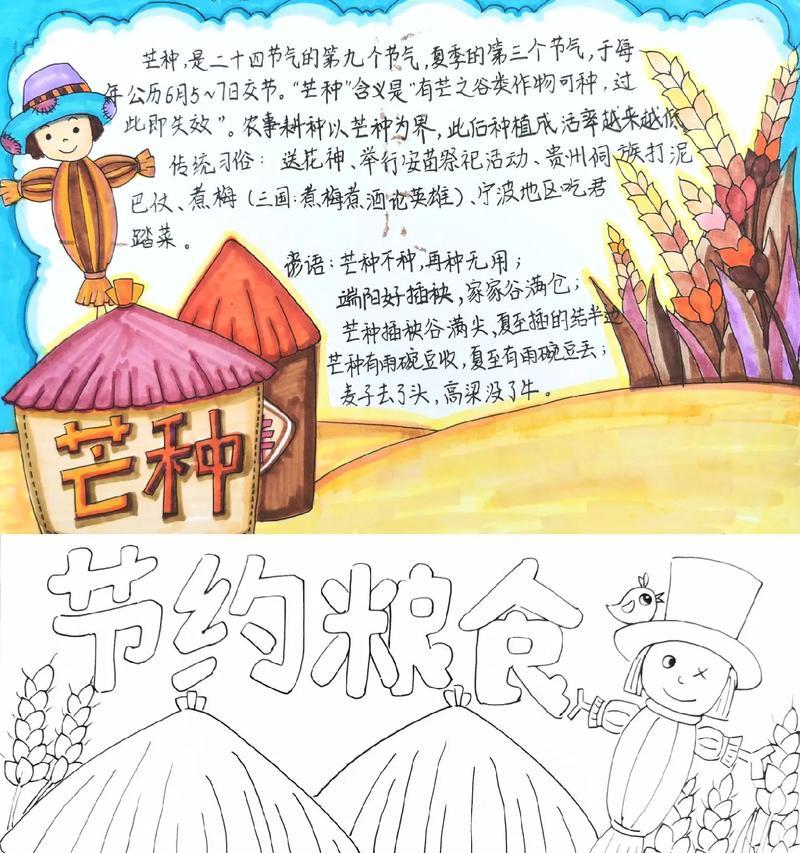 芒种，是二十四节气的第九个节气，夏季的第三个节气，于每
年公历6月5~7日交节。“芒种”含义是“有芒之谷类作物可种，过
此即失效”。农事耕种以芒种为界，此后种植成活率越来越低
传统习俗：送花神、举行安苗祭祀活动、贵州侗族打泥
巴仗、煮梅（三国：煮梅煮酒论英雄）、宁波地区吃君
踏菜。
谚语：芒种不种，再种无用；
端阳好插秧，家家谷满仓；
芒种插秧谷满尖，夏至插的结半边
芒种有雨碗豆收，夏至有雨碗豆丢；
麦子去了头，高梁没了牛。
芒种
节约粮食